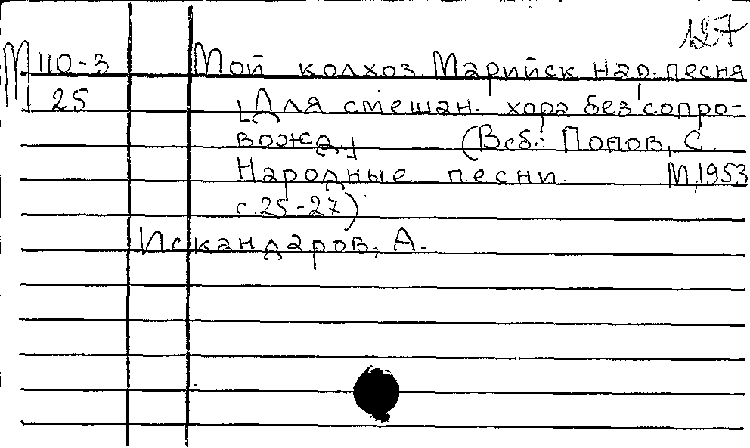 127
М 110-3 Мой колхоз Марийск нар. песня
25 [Для смешан. хора без сопро-
вожд.] (В сб.: Попов, С.
Народные песни. М, 1953
с. 25-27)
Искандаров, А.